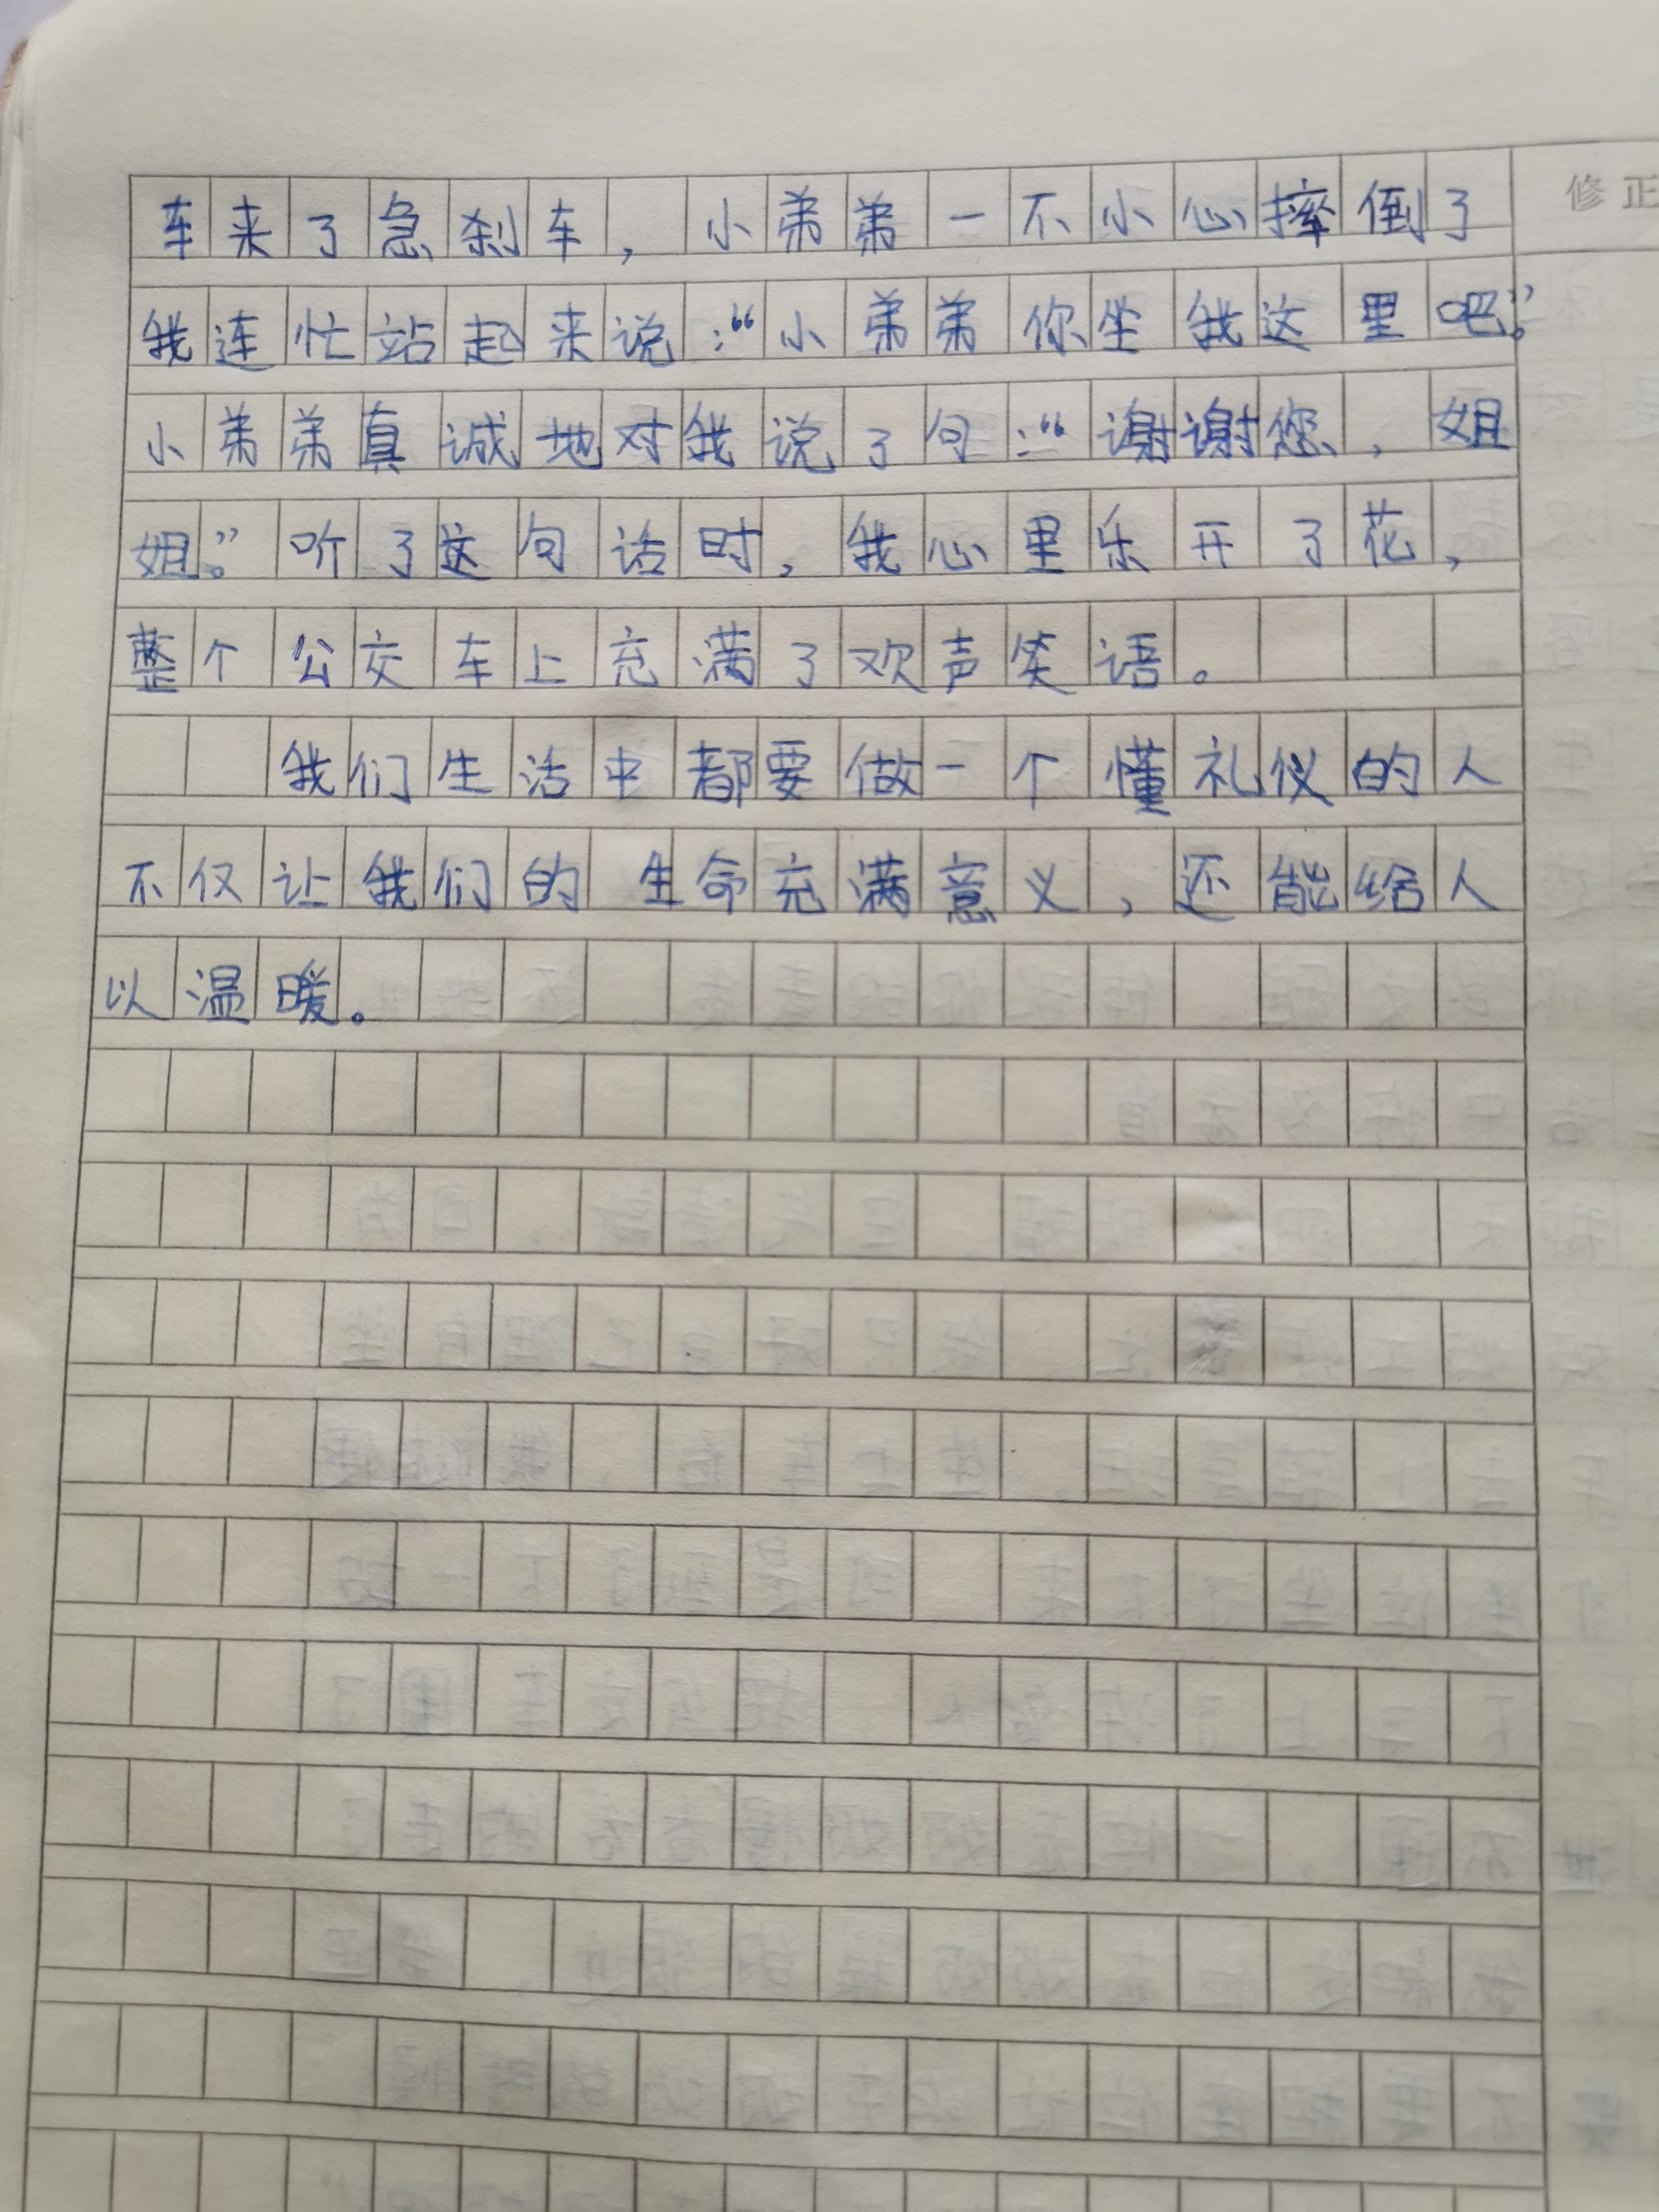 修正
车来了急刹车，小弟弟一不小心摔倒了
我连忙站起来说：“小弟弟你坐我这里吧。”
小弟弟真诚地对我说了句：“谢谢您，姐
姐。”听了这句话时，我心里乐开了花，
整个公交车上充满了欢声笑语。
我们生活中都要做一个懂礼仪的人
不仅让我们的生命充满意义，还能给人
以温暖。